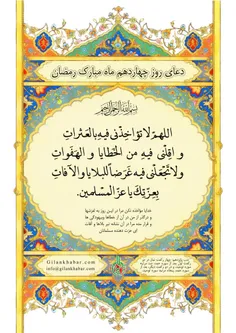 دعای روز چهاردهم ماه مبارک رمضان
بسم الله الرحمن الرحیم
اللهمّ لا تؤاخِذْنی فیهِ بالعَثَراتِ
و اقِلْنی فیهِ من الخَطایا و الهَفَواتِ
ولا تَجْعَلْنی فیه غَرَضاً للبلایا والآفاتِ
بِعِزّتِكَ یا عزّ المسْلمین.
خدایا مؤاخذه نکن مرا در این روز به لغزشها
و درگذر از من در آن از خطاها و بیهودگی ها
و قرار مده مرا در آن نشانه تیر بلاها و آفات
ای عزت دهنده مسلمانان
Gilankhabar.com
info@gilankhabar.com